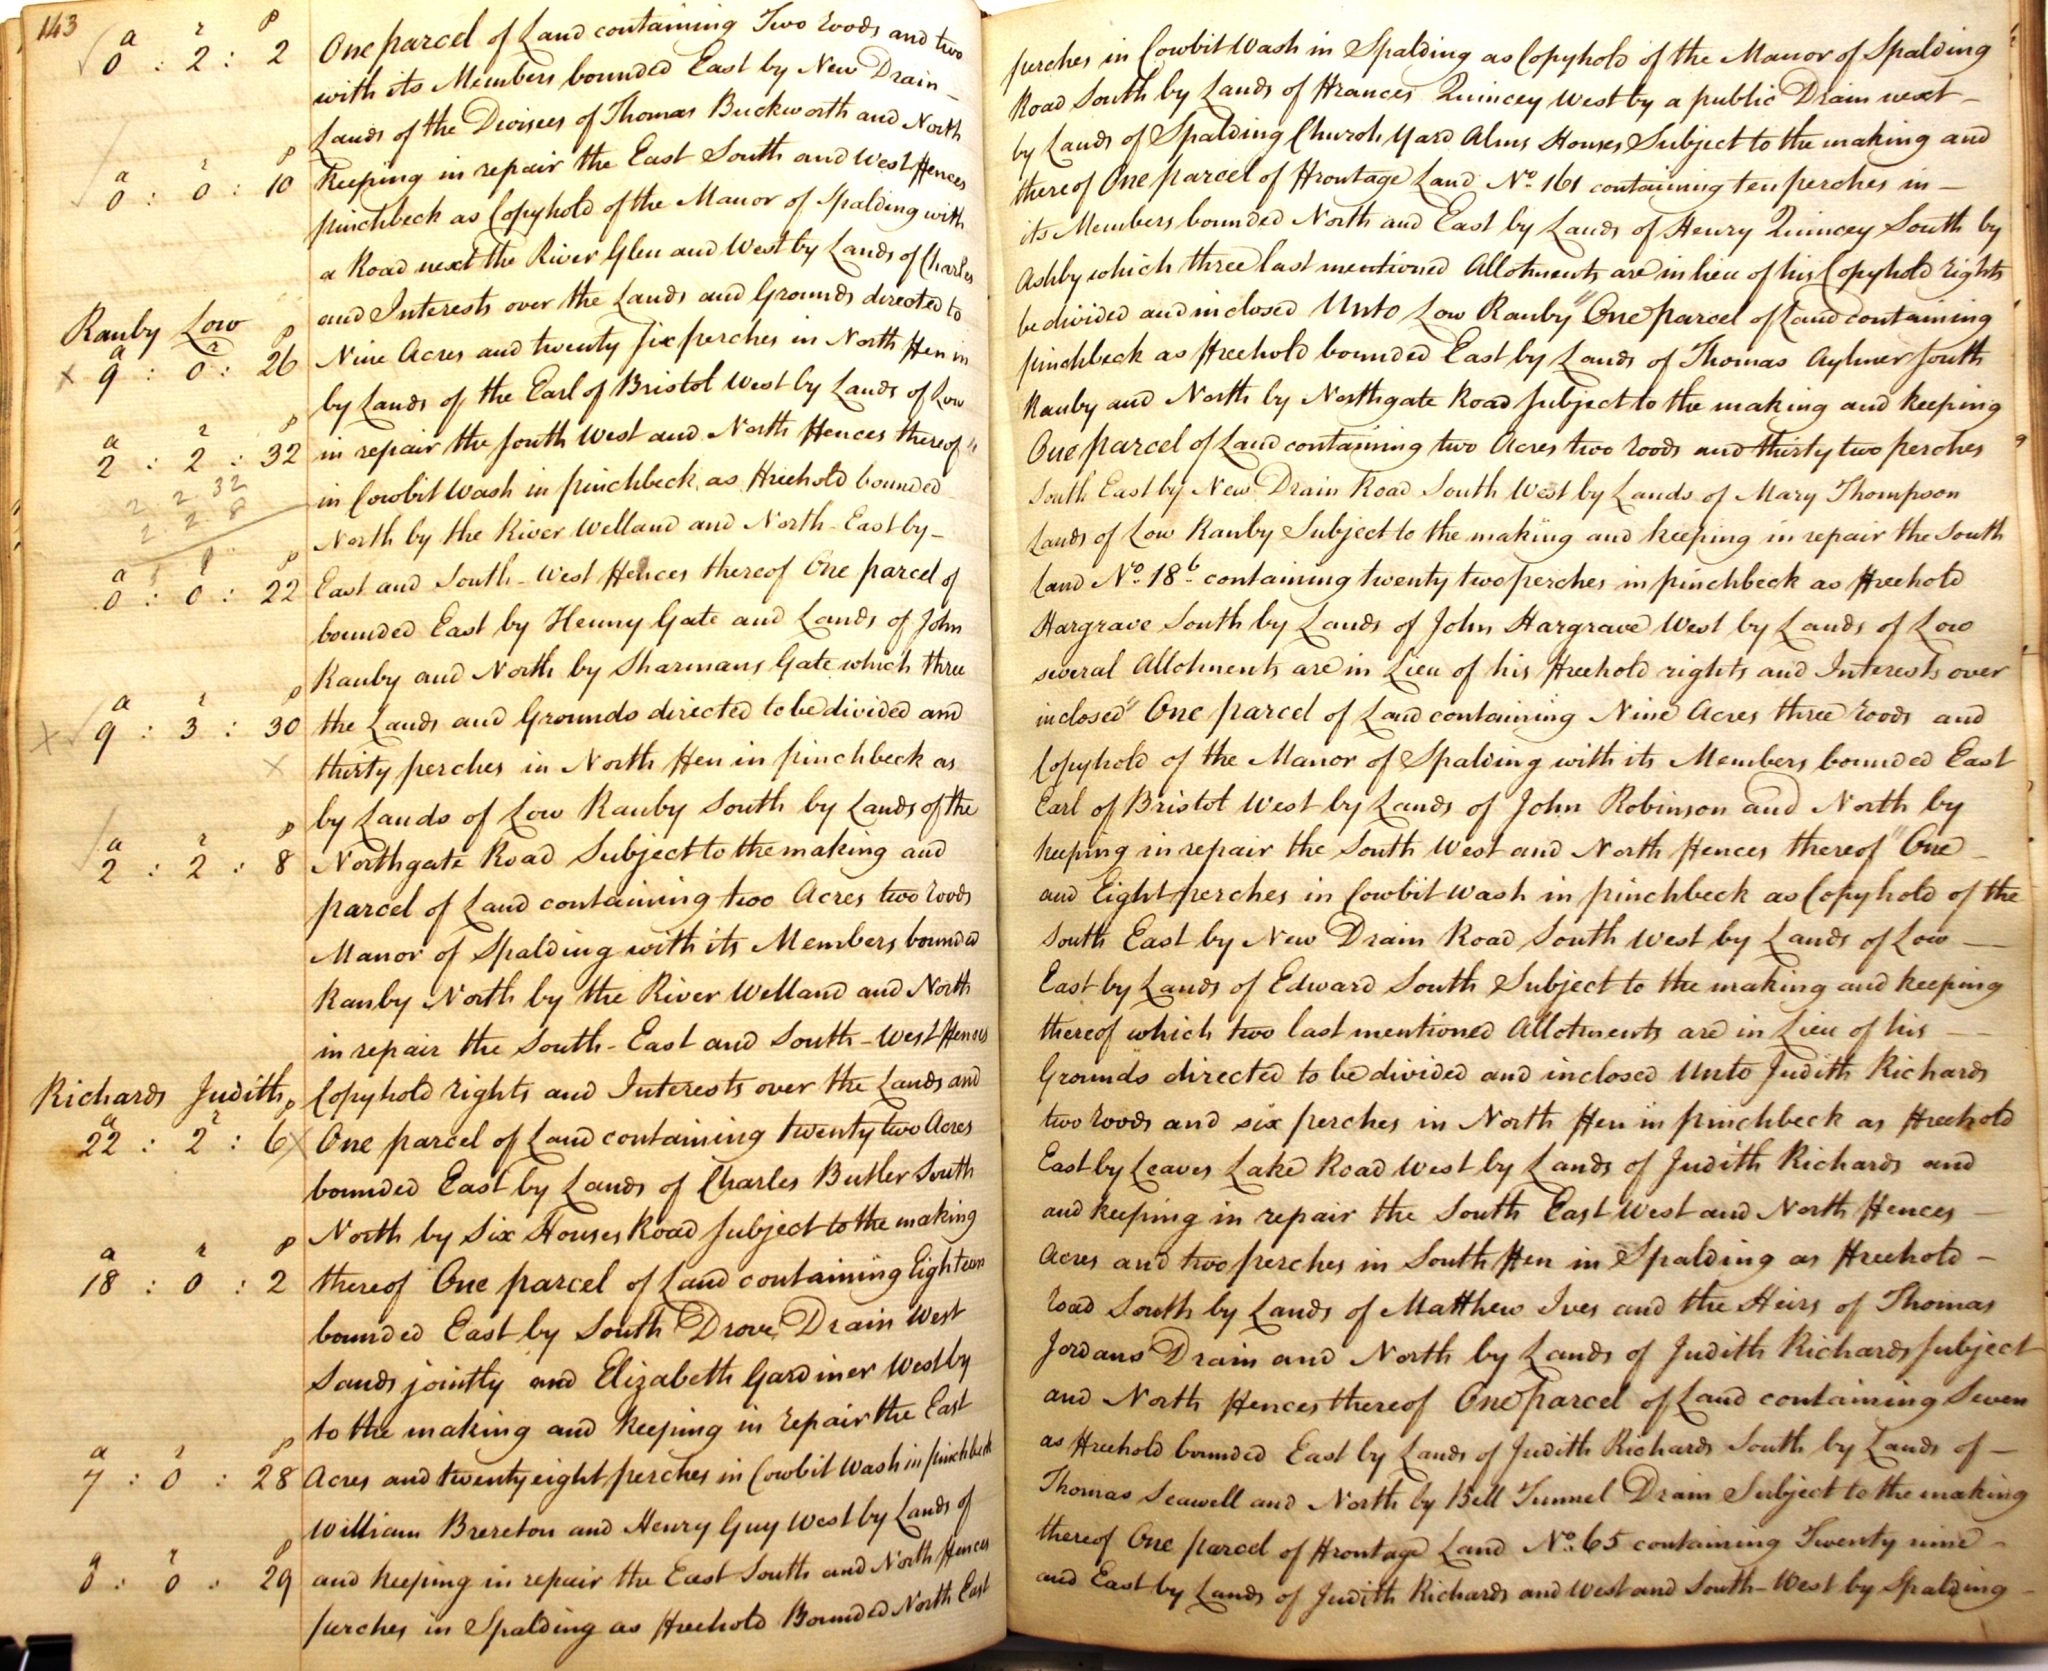 143
a r p
0 : 2 : 2 One parcel of Land containing Two roods and two perches in Cowbit Wash in Spalding as Copyhold of the Manor of Spalding
with its Members bounded East by New Drain Road South by Lands of Frances Quincey West by a public Drain next
Lands of the Devisees of Thomas Buckworth and North by Lands of Spalding Church Yard Alms Houses Subject to the making and
a r p
0 : 0 : 10 keeping in repair the East South and West Fences thereof One parcel of Frontage Land No. 161 containing ten perches in
pinchbeck as Copyhold of the Manor of Spalding with its Members bounded North and East by Lands of Henry Quincey South by
a Road next the River Glen and West by Lands of Charles Ashby which three last mentioned Allotments are in lieu of his Copyhold rights
and Interests over the Lands and Grounds directed to be divided and inclosed Unto Low Ranby One parcel of Land containing
Ranby Low
a r p
9 : 0 : 26 Nine Acres and twenty six perches in North Fen in pinchbeck as Freehold bounded East by Lands of Thomas Aylmer South
by Lands of the Earl of Bristol West by Lands of Low Ranby and North by Northgate Road subject to the making and keeping
a r p
2 : 2 : 32 in repair the South West and North Fences thereof One parcel of Land containing two Acres two roods and thirty two perches
2 2 32
2 2 8
in Cowbit Wash in pinchbeck as Freehold bounded South East by New Drain Road South West by Lands of Mary Thompson
North by the River Welland and North-East by Lands of Low Ranby Subject to the making and keeping in repair the South
a r p
0 : 0 : 22 East and South-West Fences thereof One parcel of Land No. 18b containing twenty two perches in pinchbeck as Freehold
bounded East by Henny Gate and Lands of John Hargrave South by Lands of John Hargrave West by Lands of Low
Ranby and North by Sharmans Gate which three several Allotments are in Lieu of his Freehold rights and Interests over
a r p
9 : 3 : 30 the Lands and Grounds directed to be divided and inclosed One parcel of Land containing Nine Acres three roods and
thirty perches in North Fen in pinchbeck as Copyhold of the Manor of Spalding with its Members bounded East
by Lands of Low Ranby South by Lands of the Earl of Bristol West by Lands of John Robinson and North by
a r p
2 : 2 : 8 Northgate Road Subject to the making and keeping in repair the South West and North Fences thereof One
parcel of Land containing two Acres two roods and Eight perches in Cowbit Wash in pinchbeck as Copyhold of the
Manor of Spalding with its Members bounded South East by New Drain Road South West by Lands of Low
Ranby North by the River Welland and North East by Lands of Edward South Subject to the making and keeping
in repair the South-East and South-West Fences thereof which two last mentioned Allotments are in Lieu of his
Copyhold rights and Interests over the Lands and Grounds directed to be divided and inclosed Unto Judith Richards
Richards Judith
a r p
22 : 2 : 6 One parcel of Land containing twenty two Acres two roods and six perches in North Fen in pinchbeck as Freehold
bounded East by Lands of Charles Butler South East by Leaves Lake Road West by Lands of Judith Richards and
North by Six Houses Road subject to the making and keeping in repair the South East West and North Fences
a r p
18 : 0 : 2 thereof One parcel of Land containing Eighteen Acres and two perches in South Fen in Spalding as Freehold
bounded East by South Drove Drain West road South by Lands of Matthew Ives and the Heirs of Thomas
Sands jointly and Elizabeth Gardiner West by Jordans Drain and North by Lands of Judith Richards subject
to the making and keeping in repair the East and North Fences thereof One parcel of Land containing Seven
a r p
7 : 0 : 28 Acres and twenty eight perches in Cowbit Wash in pinchbeck as Freehold bounded East by Lands of Judith Richards South by Lands of
William Brereton and Henry Guy West by Lands of Thomas Seawell and North by Bell Tunnel Drain Subject to the making
a r p
0 : 0 : 29 and keeping in repair the East South and North Fences thereof One parcel of Frontage Land No. 65 containing Twenty nine
perches in Spalding as Freehold Bounded North East and East by Lands of Judith Richards and West and South-West by Spalding